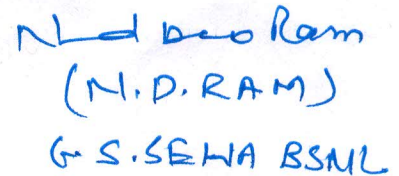 Nd Deo Ram
(N.D.RAM)
G.S.SEWA BSNL